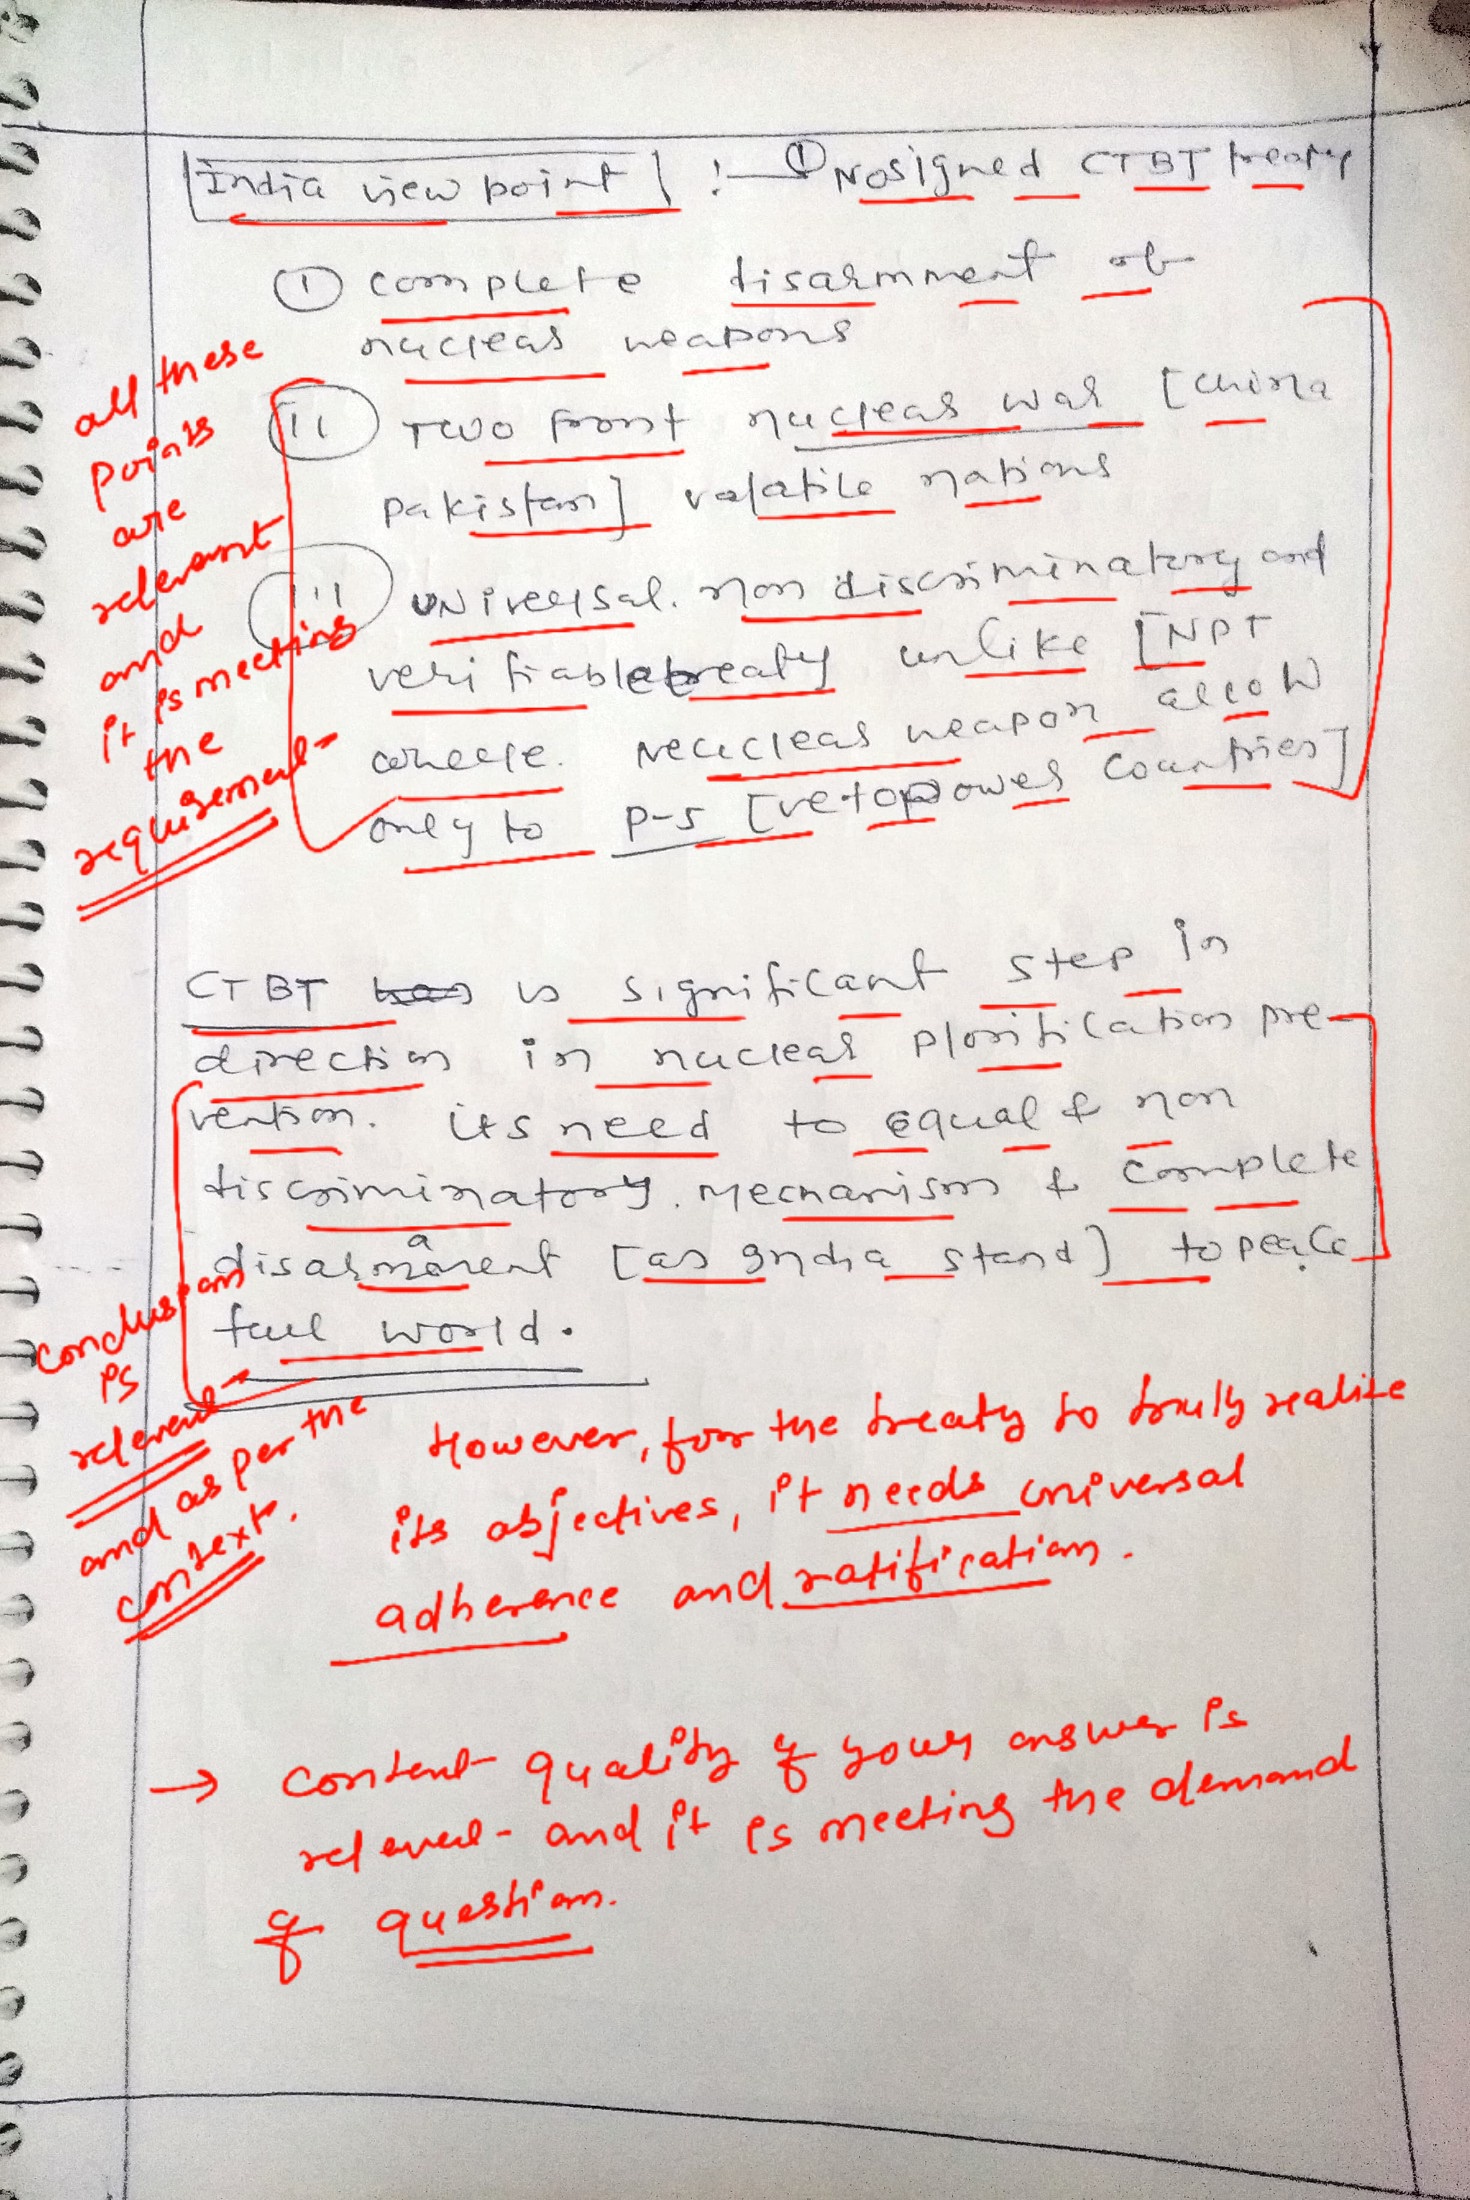 India view point :- ① Nosigned CTBT treaty
① complete disarmment of
nuclear weapons
II Two front nuclear war [China
Pakistan] volatile nations
III UNiversal. non discriminatory and
verifiable treaty unlike [NPT
where. Nuclear weapon allow
only to P-5 [veto power Countries]
all these
points
are
relevant
and
it is meeting
the
requirement
CTBT is significant step in
direction in nuclear plorification pre-
vention. its need to equal & non
discriminatory. mechanism & complete
disarmament [as India stand] to peace
full world.
conclusion
is
relevant
and as per the
context.
However, for the treaty to truly realize
its objectives, it needs universal
adherence and ratification.
→ Content quality of your answer is
relevant and it is meeting the demand
of question.